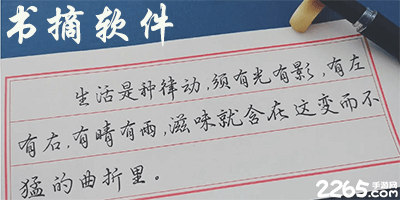 书摘软件
生活是种律动，须有光有影，有左
有右，有晴有雨，滋味就含在这变而不
猛的曲折里。
2265手游网
.com